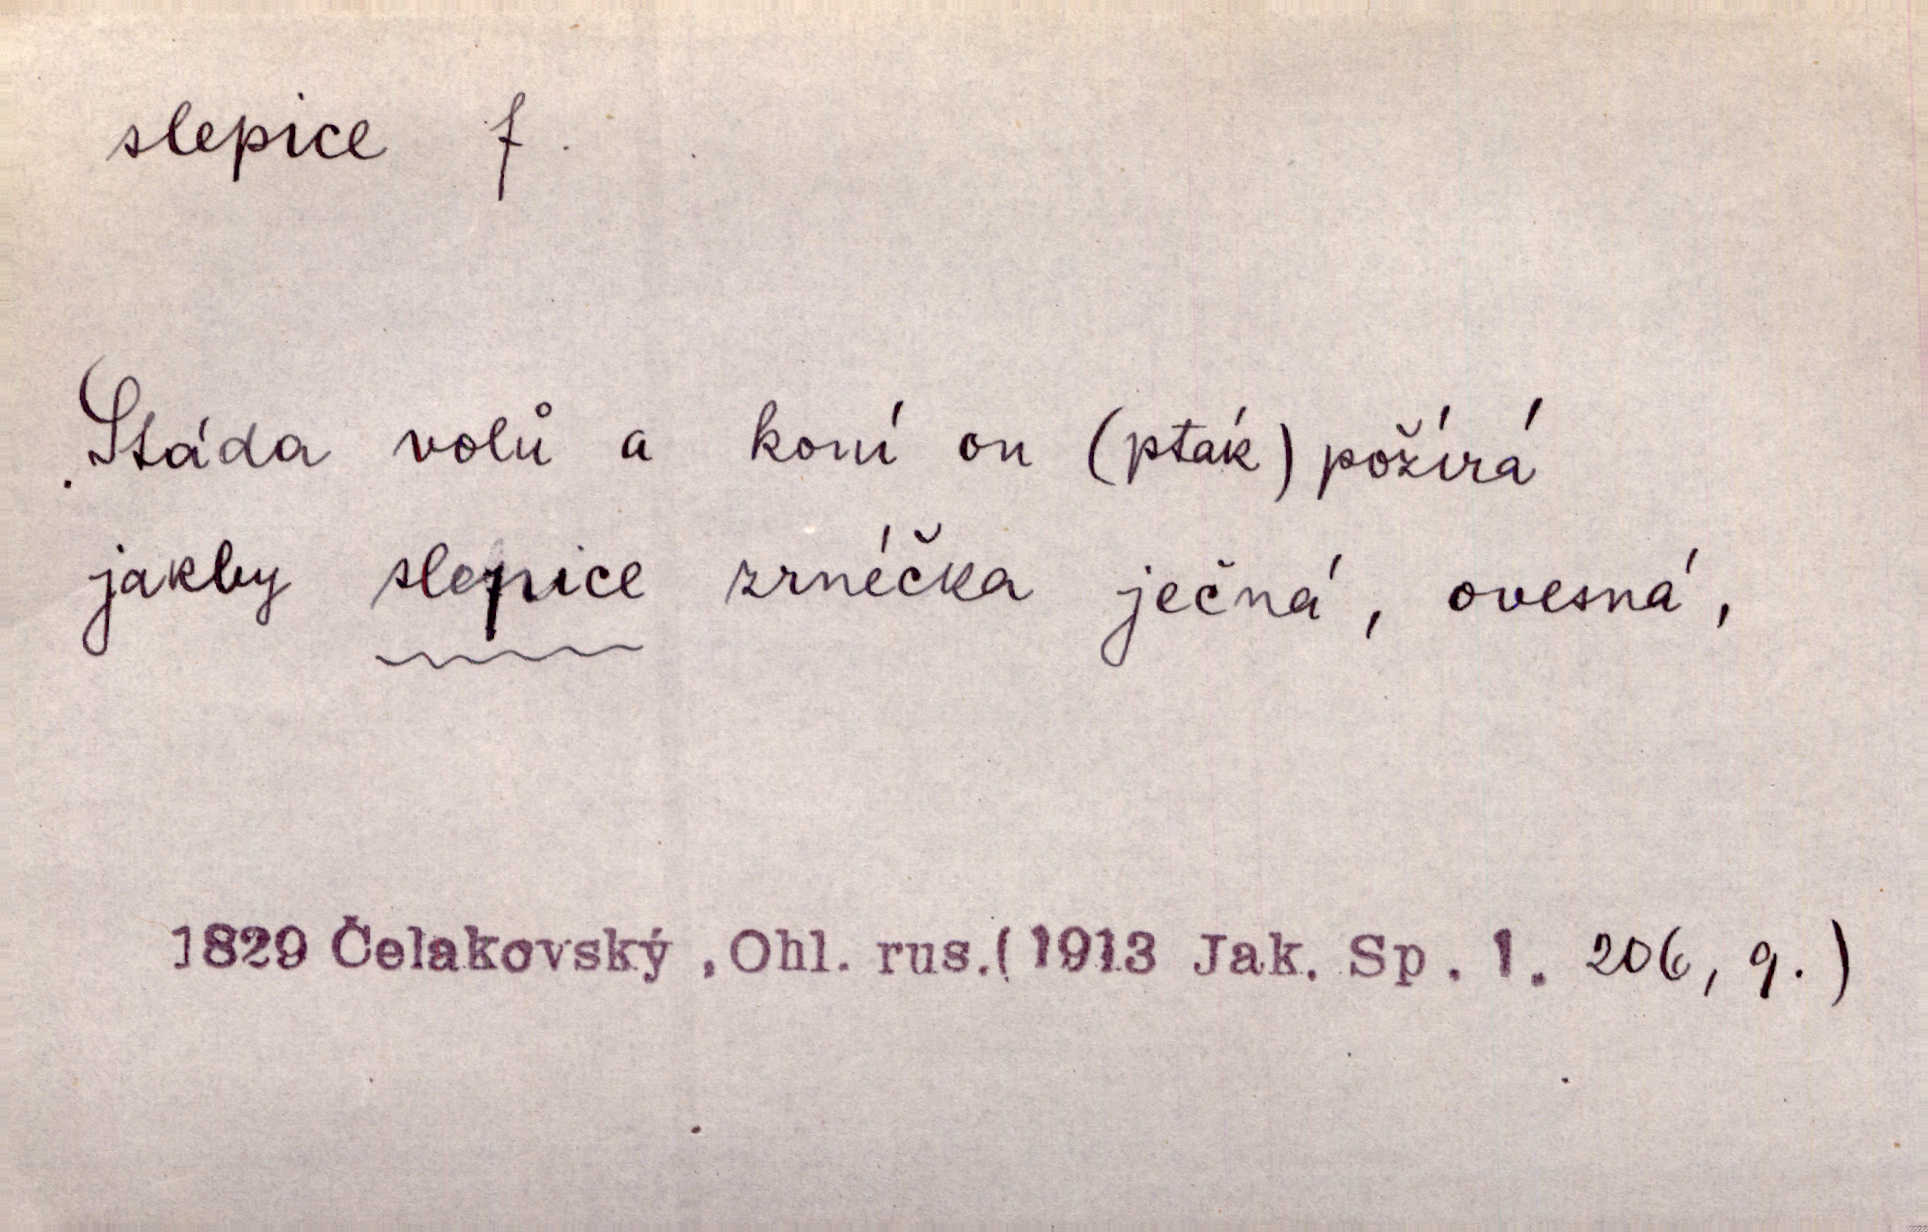 slepice f.
Stáda volů a koní on (pták) požírá
jakby slepice zrnéčka ječná, ovesná,
1829 Čelakovský, Ohl. rus.(1913 Jak. Sp. 1. 206, 9.)